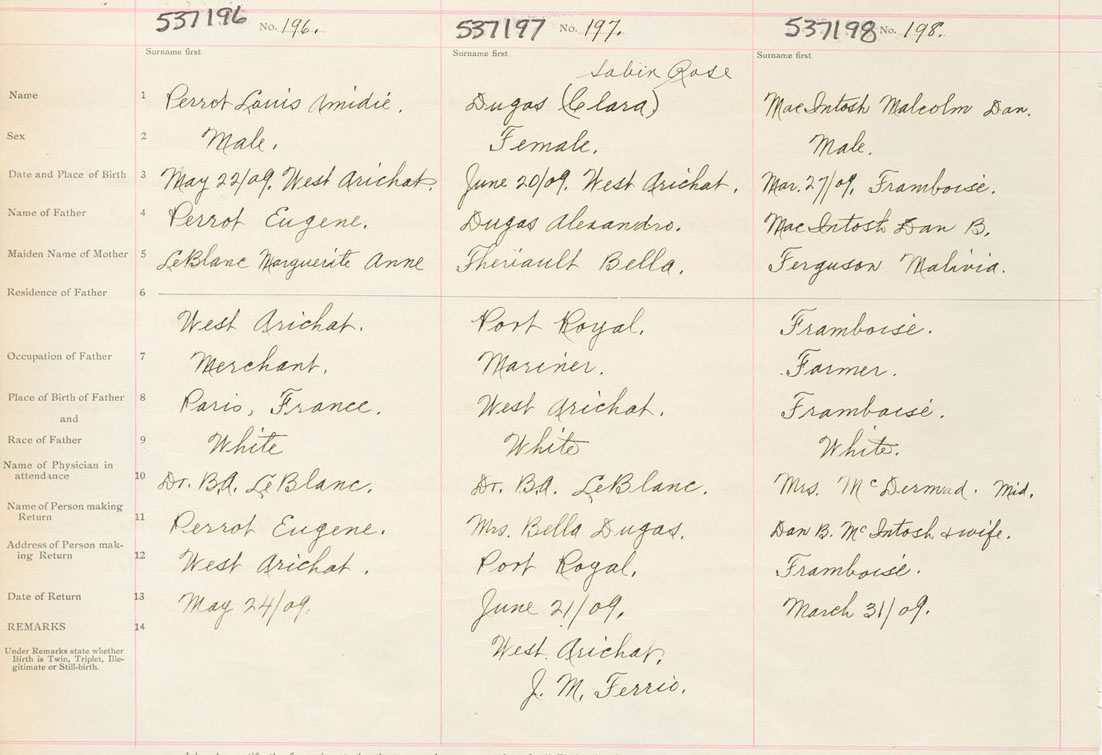 537196 No. 196. 537197 No. 197. 537198 No. 198.
Surname first Surname first
Sabin Rose
Name 1 Perrot Louis Amidié. Dugas (Clara) MacIntosh Malcolm Dan.
Sex 2 Male. Female. Male.
Date and Place of Birth 3 May 22/09. West Arichat. June 20/09. West Arichat. Mar. 27/09. Framboise.
Name of Father 4 Perrot Eugene. Dugas Alexandro. MacIntosh Dan B.
Maiden Name of Mother 5 LeBlanc Marguerite Anne Theriault Bella. Ferguson Malivia.
Residence of Father 6
West Arichat. Port Royal. Framboise.
Occupation of Father 7 Merchant. Mariner. Farmer.
Place of Birth of Father 8 Paris, France. West Arichat. Framboise.
and
Race of Father 9 White White White.
Name of Physician in
attendance 10 Dr. B.A. LeBlanc. Dr. B.A. LeBlanc. Mrs. McDermid. Mid.
Name of Person making
Return 11 Perrot Eugene. Mrs. Bella Dugas. Dan B. McIntosh & wife.
Address of Person mak-
ing Return 12 West Arichat. Port Royal. Framboise.
Date of Return 13 May 24/09. June 21/09. March 31/09.
REMARKS 14
Under Remarks state whether
Birth is Twin, Triplet, Ille-
gitimate or Still-birth.
West Arichat.
J. M. Ferrio.